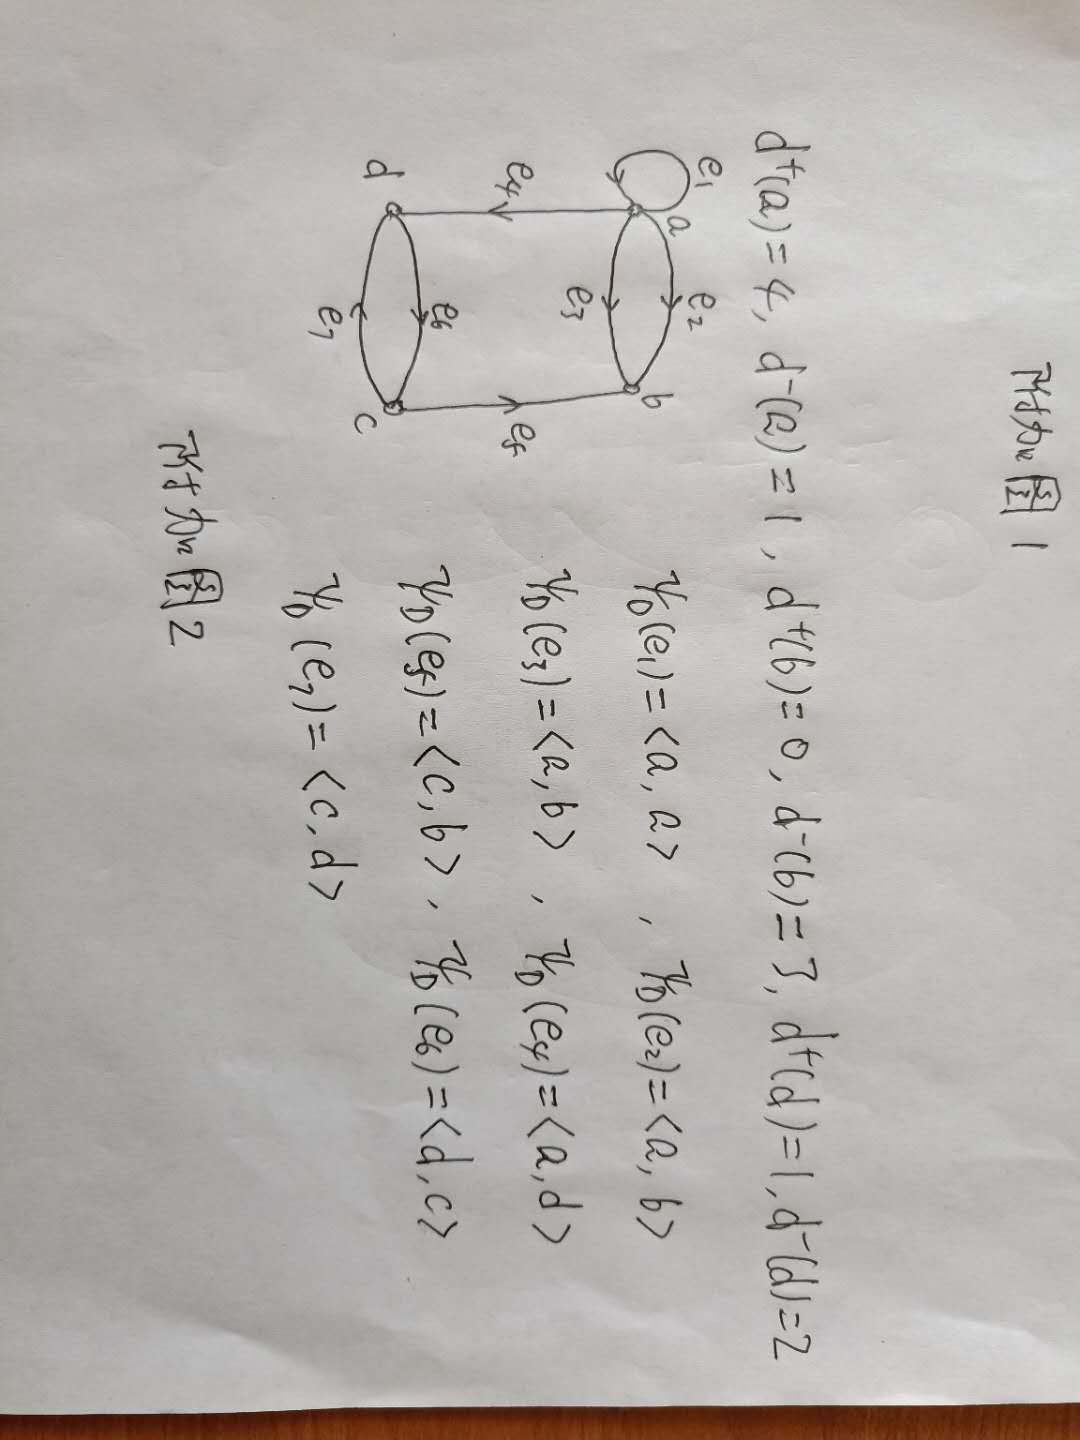 附加图1
d⁺(a)=4, d⁻(a)=1, d⁺(b)=0, d⁻(b)=3, d⁺(d)=1, d⁻(d)=2
e₁
a
e₂
b
e₃
e₄
e₅
e₆
d
c
e₇
ψ_D(e₁)=<a, a> , ψ_D(e₂)=<a, b>
ψ_D(e₃)=<a, b> , ψ_D(e₄)=<a, d>
ψ_D(e₅)=<c, b> , ψ_D(e₆)=<d, c>
ψ_D(e₇)=<c, d>
附加图2